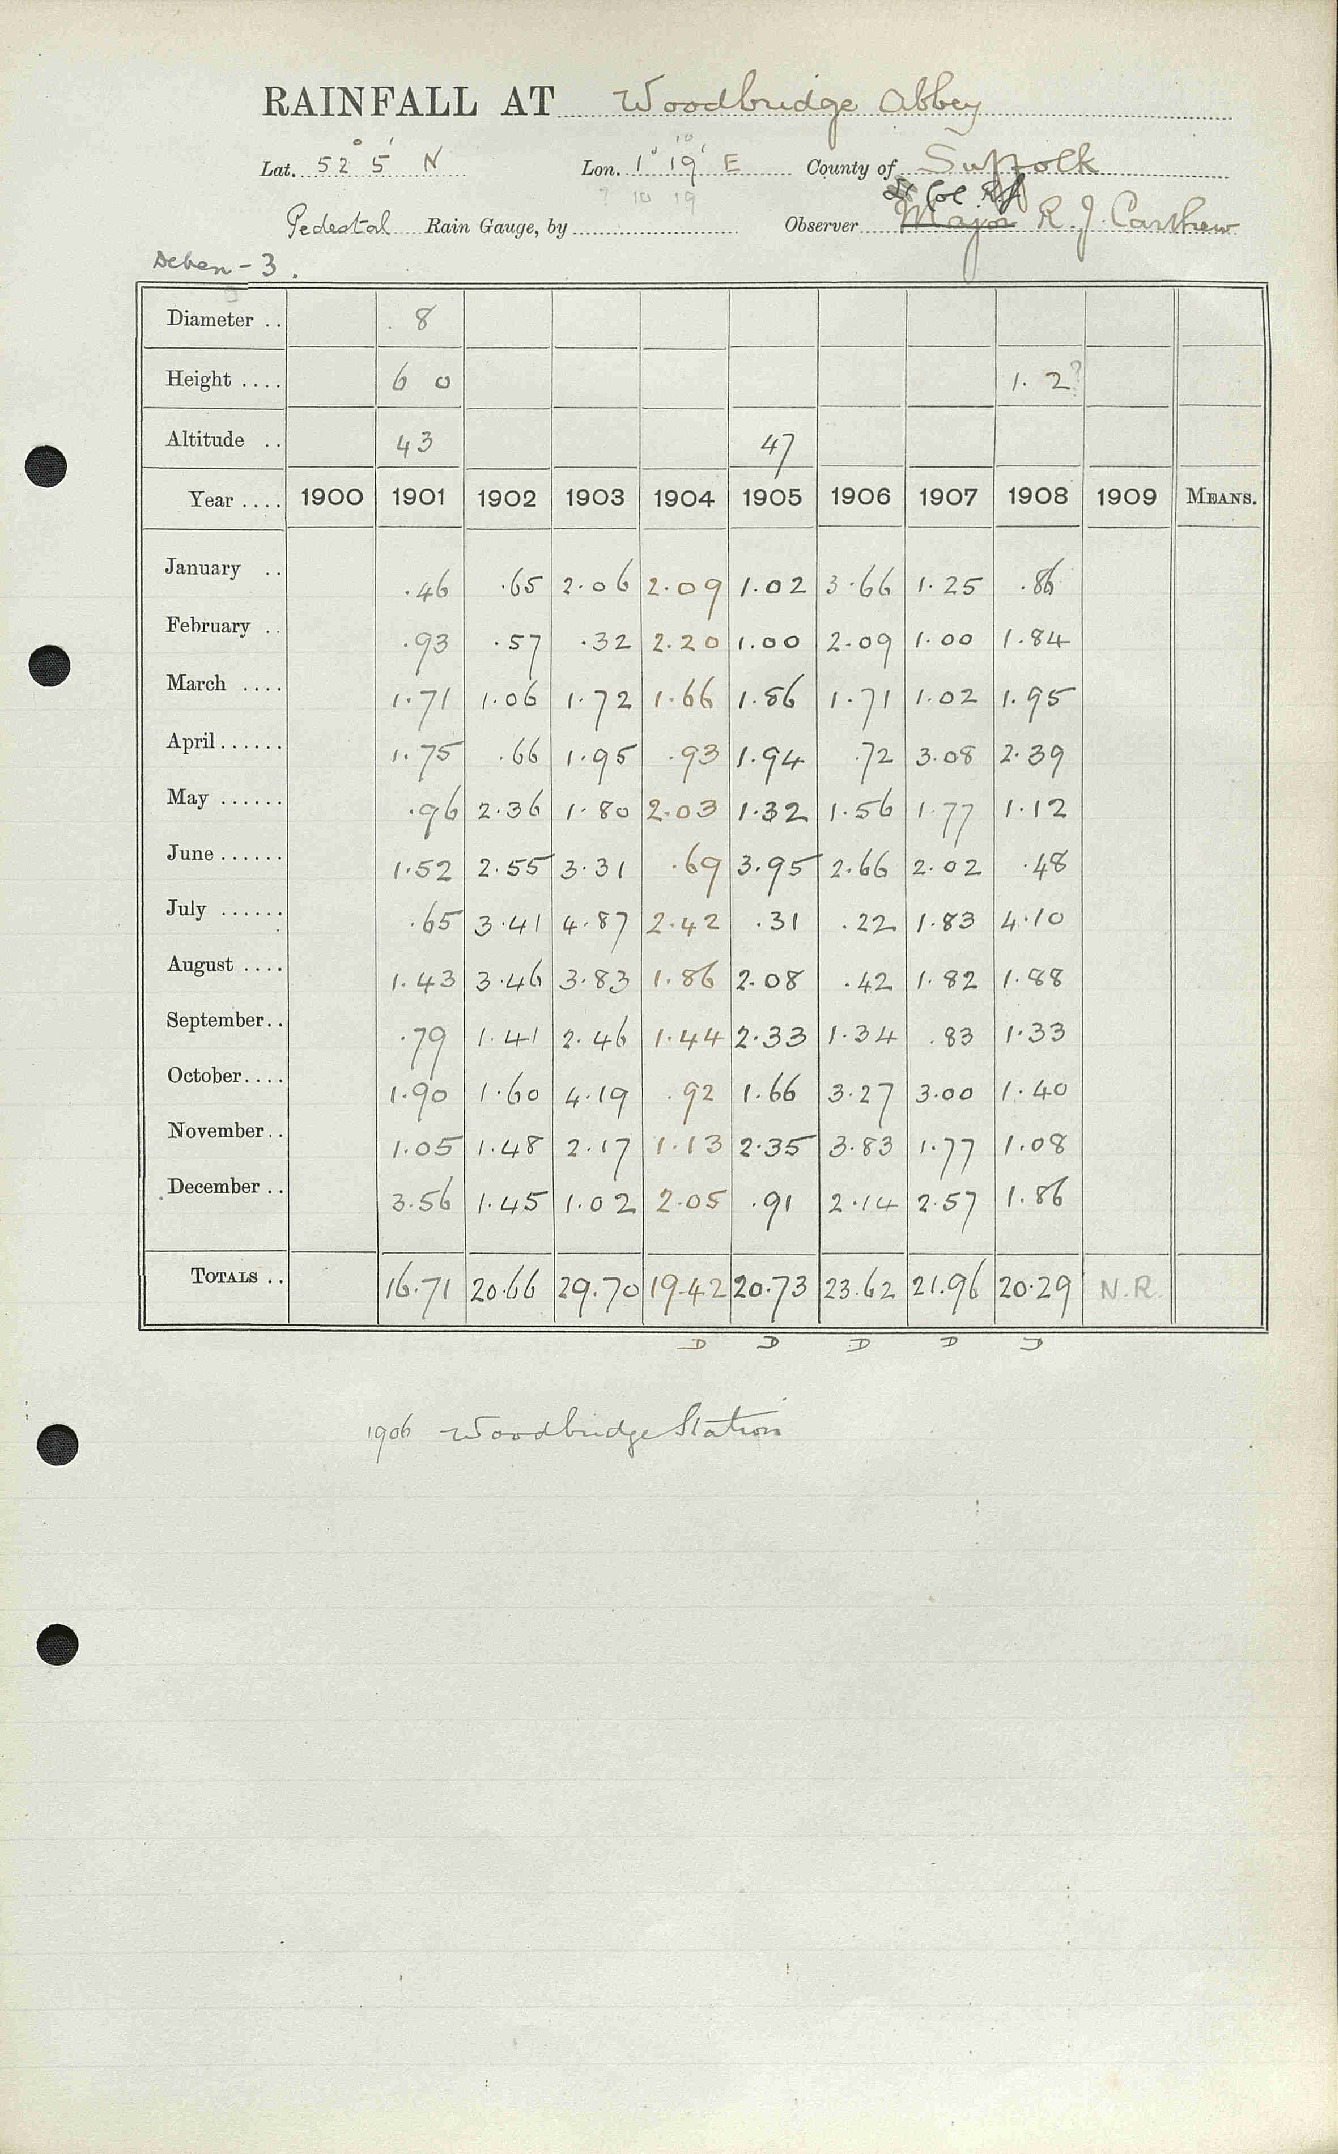 RAINFALL AT Woodbridge Abbey
Lat. 52° 5' N Lon. 1° 19' E County of Suffolk
Lt Col RJ
Pedestal Rain Gauge, by Observer Major R. J. Carthew
Deben - 3.
Diameter .. 8
Height .... 6 0 1. 2?
Altitude .. 43 47
Year .... 1900 1901 1902 1903 1904 1905 1906 1907 1908 1909 MEANS.
January .. .46 .65 2.06 2.09 1.02 3.66 1.25 .86
February .. .93 .57 .32 2.20 1.00 2.09 1.00 1.84
March .... 1.71 1.06 1.72 1.66 1.86 1.71 1.02 1.95
April ...... 1.75 .66 1.95 .93 1.94 .72 3.08 2.39
May ...... .96 2.36 1.80 2.03 1.32 1.56 1.77 1.12
June ...... 1.52 2.55 3.31 .69 3.95 2.66 2.02 .48
July ...... .65 3.41 4.87 2.42 .31 .22 1.83 4.10
August .... 1.43 3.46 3.83 1.86 2.08 .42 1.82 1.88
September .. .79 1.41 2.46 1.44 2.33 1.34 .83 1.33
October .... 1.90 1.60 4.19 .92 1.66 3.27 3.00 1.40
November .. 1.05 1.48 2.17 1.13 2.35 3.83 1.77 1.08
December .. 3.56 1.45 1.02 2.05 .91 2.14 2.57 1.86
TOTALS .. 16.71 20.66 29.70 19.42 20.73 23.62 21.96 20.29 N.R.
D D D D D
1906 Woodbridge Station